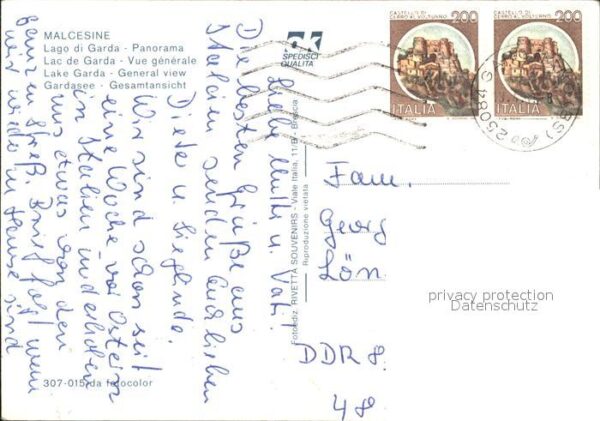 MALCESINE
Lago di Garda - Panorama
Lac de Garda - Vue générale
Lake Garda - General view
Gardasee - Gesamtansicht
SPEDISCI
QUALITÀ
CASTELLO DI
CERRO AL VOLTURNO 200
ITALIA
CASTELLO DI
CERRO AL VOLTURNO 200
ITALIA
Liebe Mutti u. Vati!
Die besten Grüße aus
Italien senden
Dieter u. Sieglinde.
Wir sind schon seit
eine Woche vor Ostern
in Italien
uns etwas von den
Streß. Brief folgt wenn
wir wieder in Hause sind
Fotoediz. RIVETTA SOUVENIRS - Viale Italia, 11/B - Brescia
Riproduzione vietata
Fam.
Georg
Lön
DDR 8.
48
privacy protection
Datenschutz
307-015/da fotocolor